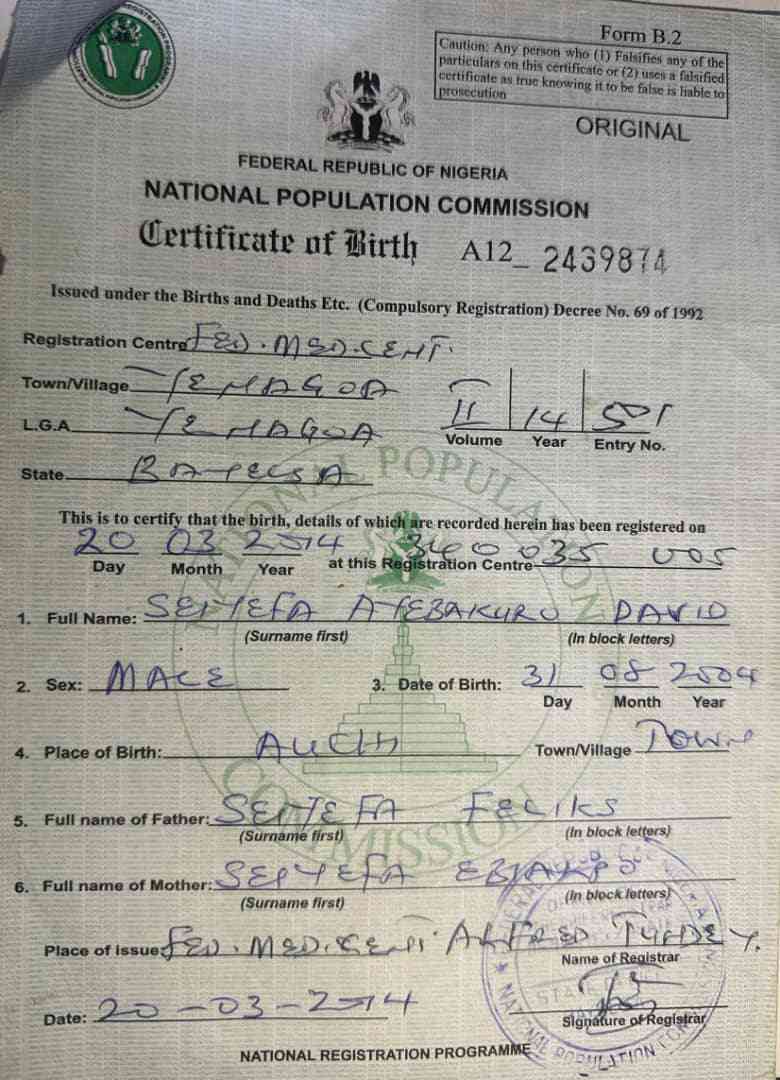 Form B.2
Caution: Any person who (1) Falsifies any of the
particulars on this certificate or (2) uses a falsified
certificate as true knowing it to be false is liable to
prosecution
ORIGINAL
FEDERAL REPUBLIC OF NIGERIA
NATIONAL POPULATION COMMISSION
Certificate of Birth A12_ 2439874
Issued under the Births and Deaths Etc. (Compulsory Registration) Decree No. 69 of 1992
Registration Centre FED. MED. CENT.
Town/Village YENAGOA
L.G.A YENAGOA
II 14 501
Volume Year Entry No.
State BAYELSA
This is to certify that the birth, details of which are recorded herein has been registered on
20 03 2014 at this Registration Centre 3400035 005
Day Month Year
1. Full Name: SEIYEFA AYEBAKURO DAVID
(Surname first) (In block letters)
2. Sex: MALE 3. Date of Birth: 31 08 2004
Day Month Year
4. Place of Birth: AUCHI Town/Village TOWN
5. Full name of Father: SEIYEFA FELIKS
(Surname first) (In block letters)
6. Full name of Mother: SEIYEFA
(Surname first) (In block letters)
Place of issue FED. MED. CENT. ALFRED
Name of Registrar
Date: 20-03-2014
Signature of Registrar
NATIONAL REGISTRATION PROGRAMME
NATIONAL POPULATION COMMISSION